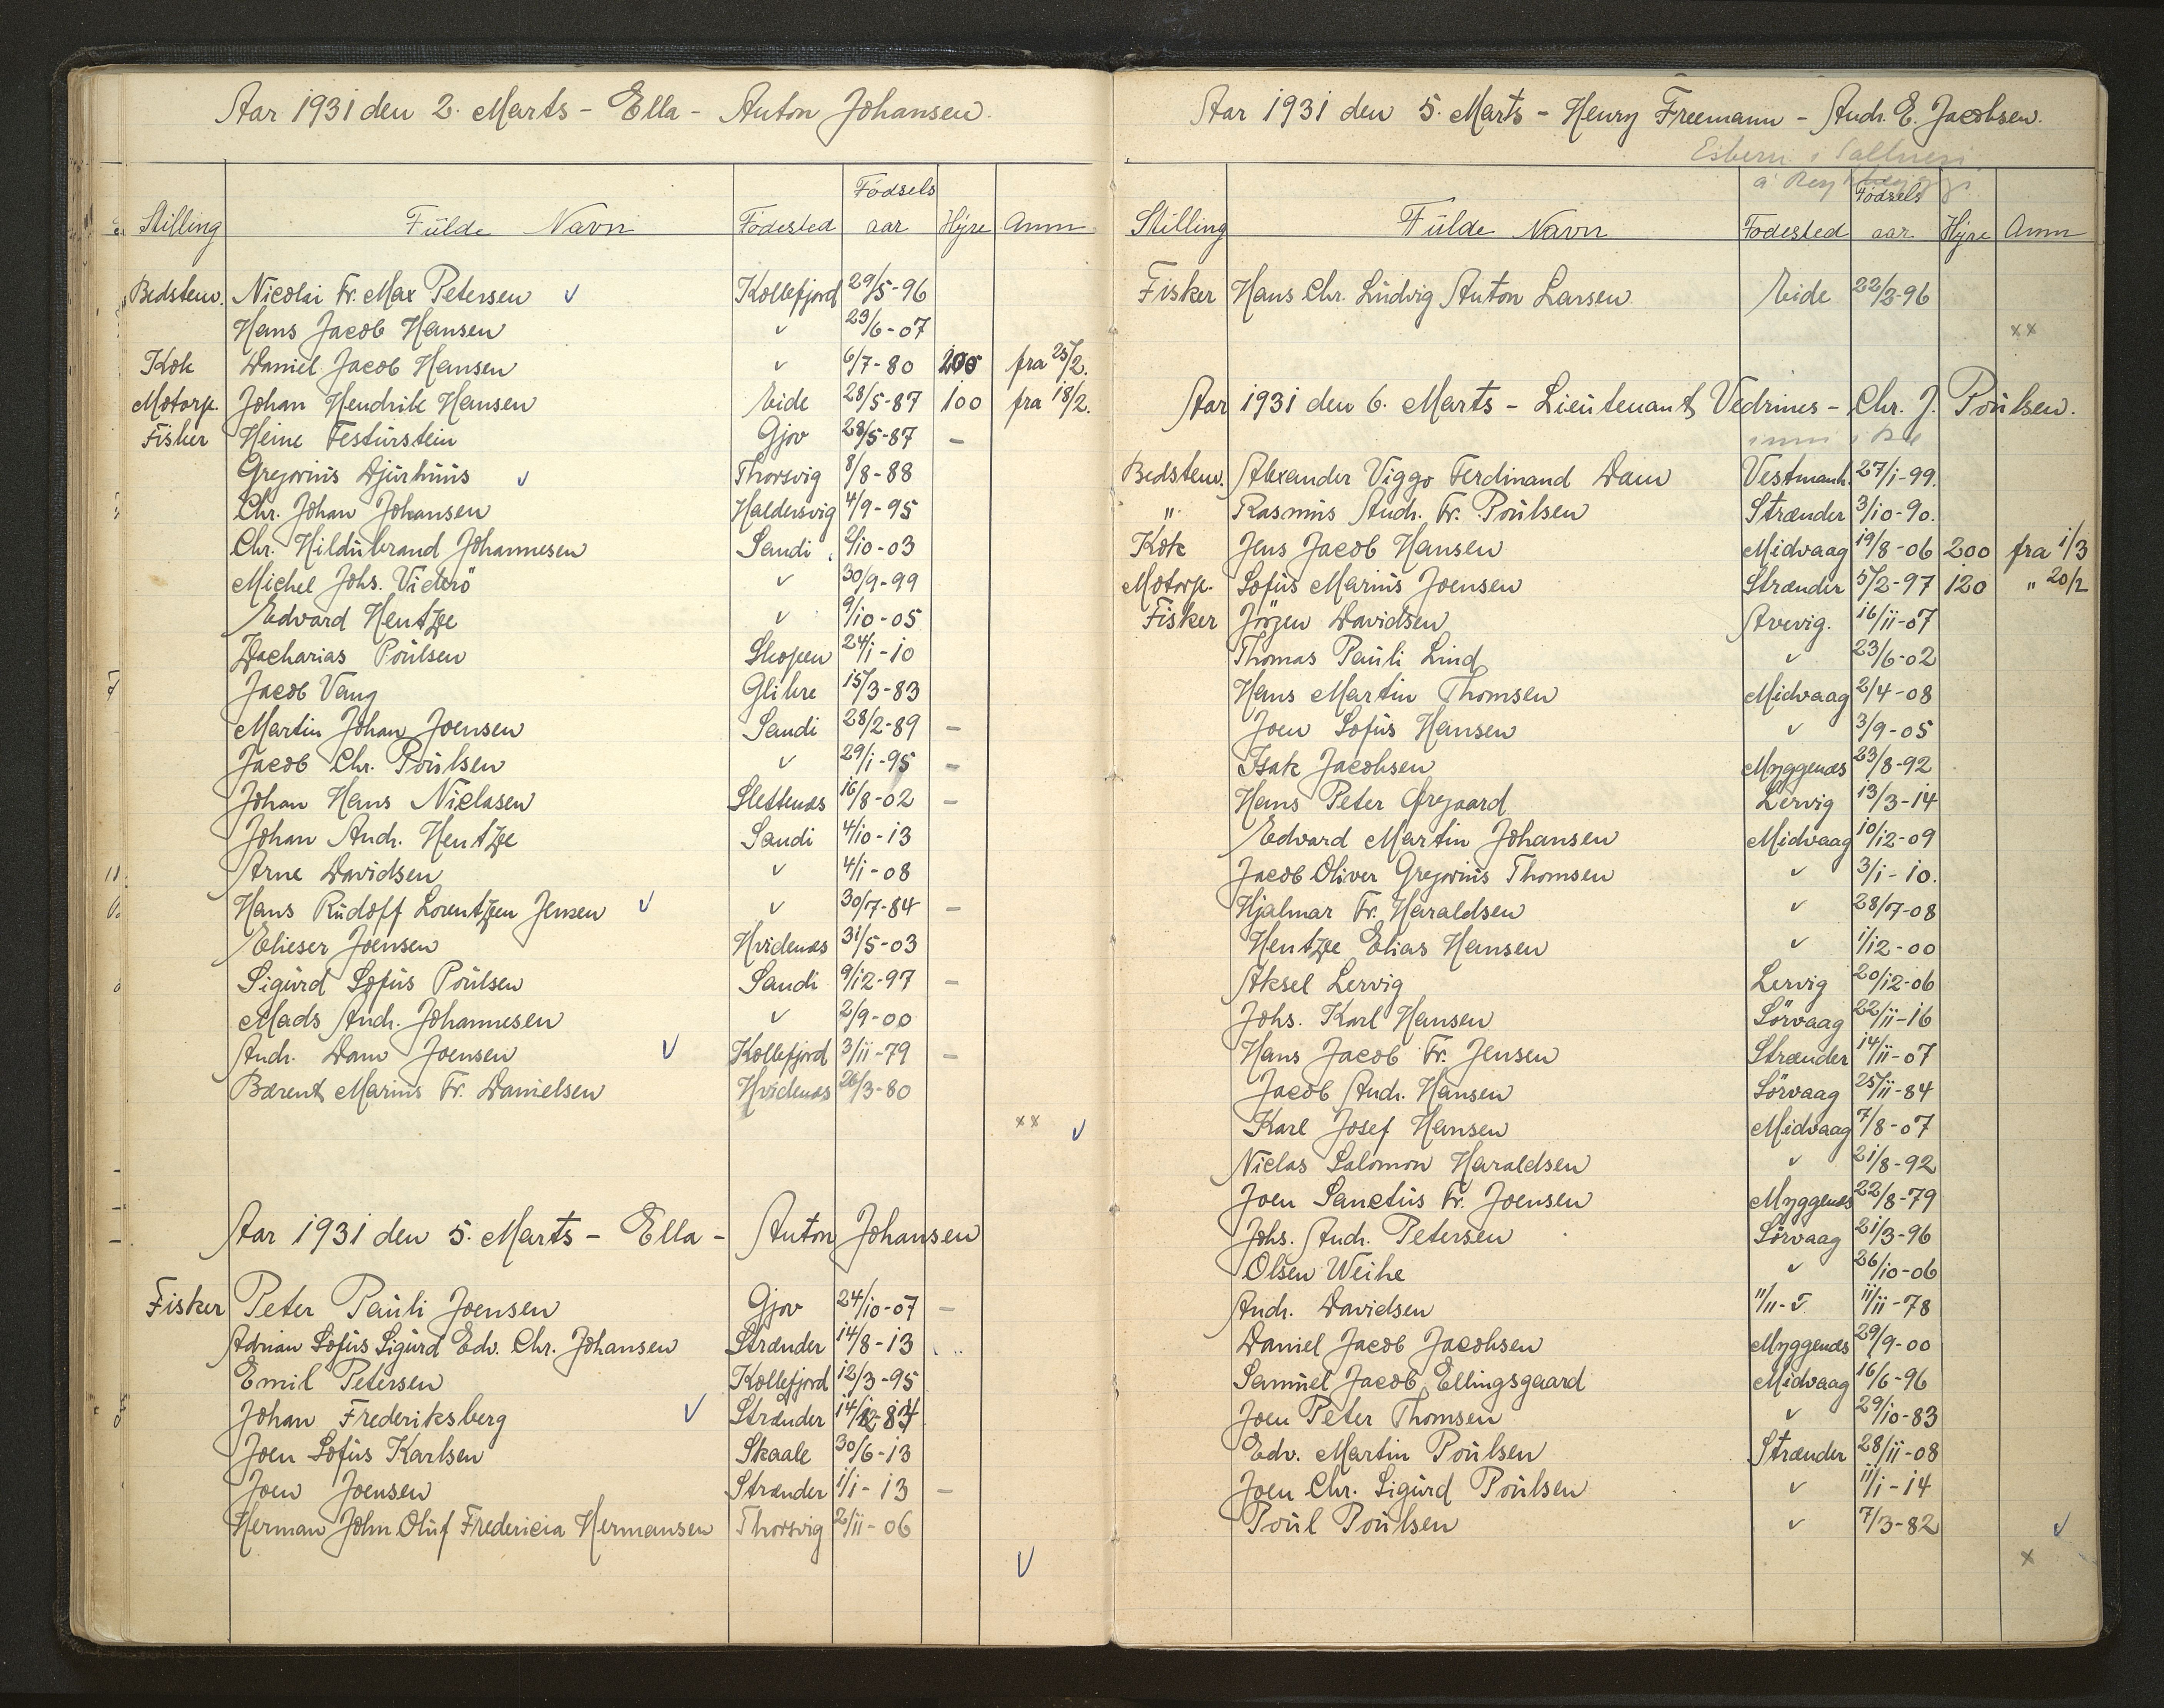 Aar 1931 den 2. Marts - Ella - Anton Johansen.
Stilling Fülde Navn Födested Födsels aar Hyre Anm
Bedstem. Nicolai Fr. Max Petersen v Kollefjord 29/5-96
Hans Jacob Hansen v 23/6-07
Kok Daniel Jacob Hansen v 6/7-80 200 fra 25/2.
Motorp. Johan Hendrik Hansen Eide 28/5-87 100 fra 18/2.
Fisker Heine Festürstein Gjov 28/5-87 -
Gregorius Djürhüüs v Thorsvig 8/8-88
Chr. Johan Johansen Haldersvig 4/9-95
Chr. Hildübrand Johannesen Sandi 2/10-03
Michel Johs. Viderö v 30/9-99
Edvard Hentze v 9/10-05
Zacharias Poülsen Skopen 24/1-10
Jacob Vang Glibre 15/3-83
Martin Johan Joensen Sandi 28/2-89 -
Jacob Chr. Poülsen v 29/1-95 -
Johan Hans Niclasen Slettenæs 16/8-02 -
Johan Andr. Hentze Sandi 4/10-13
Arne Davidsen v 4/1-08
Hans Rüdoff Lorentzen Jensen v v 30/7-84 -
Elieser Joensen Hvidenæs 31/5-03
Sigürd Sofüs Poülsen Sandi 9/12-97 -
Mads Andr. Johannesen v 2/9-00
Andr. Dam Joensen v Kollefjord 3/11-79 -
Bærent Marius Fr. Danielsen Hvidenæs 26/3-80
xx v
Aar 1931 den 5. Marts - Ella - Anton Johansen
Fisker Peter Paüli Joensen Gjov 24/10-07 -
Adrian Sofüs Sigürd Edv. Chr. Johansen Strænder 14/8-13
Emil Petersen Kollefjord 12/3-95
Johan Frederiksberg v Strænder
Joen Sofüs Karlsen Skaale 30/6-13
Joen Joensen Strænder 1/1-13 -
Herman John Olüf Fredericia Hermansen Thorsvig 2/11-06
v
Aar 1931 den 5. Marts - Henry Freemann - Andr. E. Jacobsen.
Esbern
Stilling Fülde Navn Födested Födsels aar Hyre Anm
Fisker Hans Chr. Lüdvig Anton Larsen Eide 22/2-96
xx
Aar 1931 den 6. Marts - Lieütenant Vedrines - Chr. J. Poülsen.
Bedstem. Alexander Viggo Ferdinand Dam Vestmanh. 27/1-99.
" Rasmüs Andr. Fr. Poülsen Strænder 3/10-90.
Kok Jens Jacob Hansen Midvaag 19/8-06 200 fra 1/3
Motorp. Sofüs Mariüs Joensen Strænder 5/2-97 120 " 20/2
Fisker Jörgen Davidsen Arevig. 16/11-07
Thomas Paüli Lind v 23/6-02
Hans Martin Thomsen Midvaag 2/4-08
Joen Sofüs Hansen v 3/9-05
Isak Jacobsen Myggenæs 23/8-92
Hans Peter Øregaard Lervig 13/3-14
Edvard Martin Johansen Midvaag 10/12-09
Jacob Oliver Gregoriüs Thomsen v 3/1-10.
Hjalmar Fr. Haraldsen v 28/7-08
Hentze Elias Hansen v 1/12-00
Aksel Lervig Lervig 20/12-06
Johs. Karl Hansen Sörvaag 22/11-16
Hans Jacob Fr. Jensen Strænder 14/11-07
Jacob Andr. Hansen Sörvaag 25/11-84
Karl Josef Hansen Midvaag 7/8-07
Niclas Salomon Haraldsen v 21/8-92
Joen Sanctüs Fr. Joensen Myggenæs 22/8-79
Johs. Andr. Petersen Sörvaag 21/3-96
Olsen Weihe v 26/10-06
Andr. Davidsen 11/11-78
Daniel Jacob Jacobsen Myggenæs 29/9-00
Samüel Jacob Ellingsgaard Midvaag 16/6-96
Joen Peter Thomsen v 29/10-83
Edv. Martin Poülsen Strænder 28/11-08
Joen Chr. Sigürd Poülsen v 11/1-14
Poül Poülsen v 7/3-82
v
x